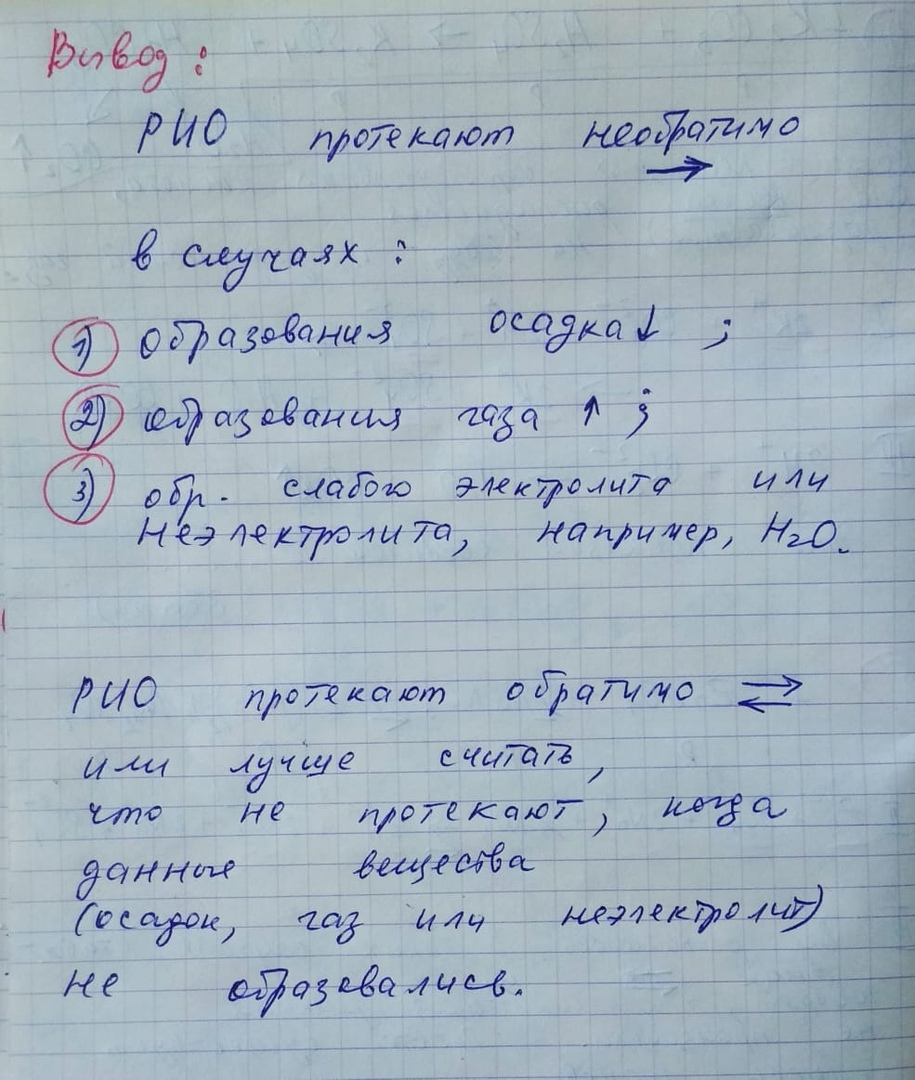 Вывод :
РИО протекают необратимо
→
в случаях :
1) образования осадка↓ ;
2) образования газа ↑ ;
3) обр. слабого электролита или
неэлектролита, например, H₂O.
РИО протекают обратимо ⇄
или лучше считать,
что не протекают, когда
данные вещества
(осадок, газ или неэлектролит)
не образовались.